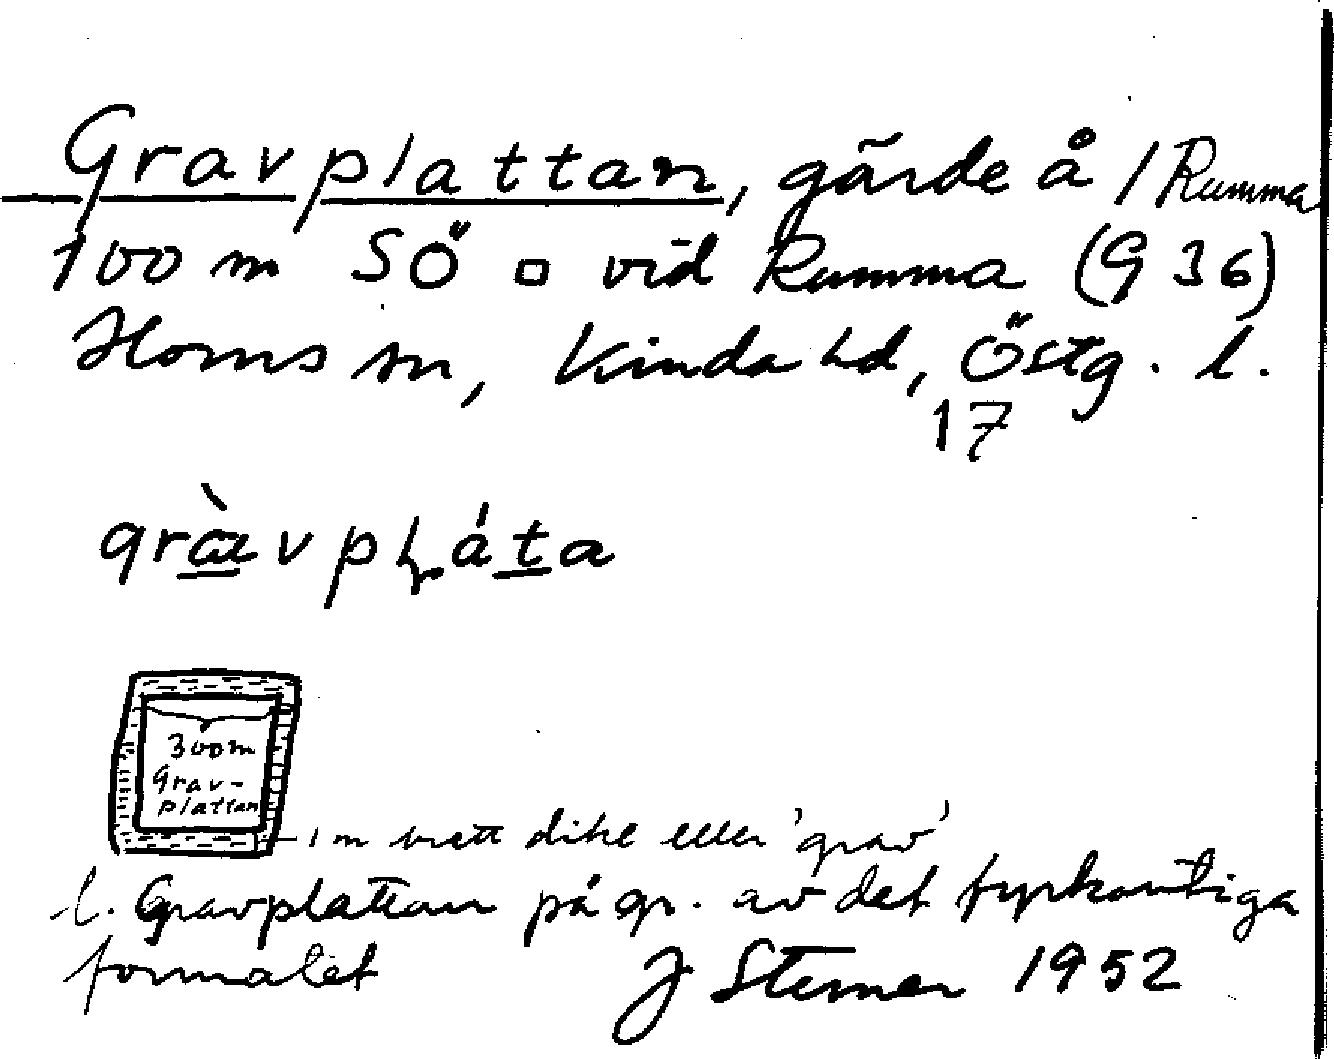 Gravplattan, gärde å /Rumma
100 m SÖ □ vid Rumma (G 36)
Horns sn, Kinda hd, Östg. l.
17
gràvpláta
300 m
Grav-
plattan
1 m brett dike eller 'grav'
l. Gravplattan på gr. av det fyrkantiga
formatet
J Sterner 1952